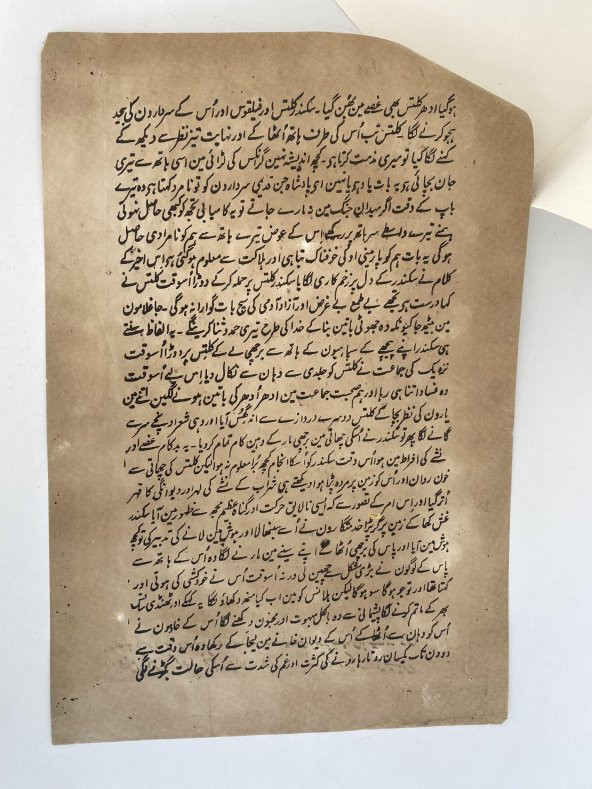 ہوگیا ادھر کلیتس بھی غصے مین بھُن گیا۔ سکندر کلیتس اور فیلقوس اور اُس کے سردارون کی بیحد
ہجو کرنے لگا۔ کلیتس تب اُس کی طرف ہاتھ اُٹھا کے اور نہایت تیز نظر سے دیکھ کے
کہنے لگا کیا تو میری مذمت کرتا ہو۔ کچھ اندیشہ نہین گرنیکس کی لڑائی مین اسی ہاتھ سے تیری
جان بچائی ہو یہ بات یاد ہو یا نہین ای بادشاہ جن قدیمی سردارون کو تو نامرد کہتا ہو وہ تیرے
باپ کے وقت اگر میدان جنگ مین نہ مارے جاتے تو یہ کامیابی تجھ کو کبھی حاصل نہوتی
ہمنے تیرے واسطے سر ہاتھ پر رکھے اس کے عوض تیرے ہاتھ سے ہم کو نامرادی حاصل
ہوگی یہ بات ہم کو پارمنی او کی خوفناک تباہی اور ہلاکت سے معلوم ہو گئی ہو اس اخیر کے
کلام نے سکندر کے دل پر زخم کاری لگایا سکندر کلیتس پر حملہ کر کے دوڑا اُسوقت کلیتس نے
کہا درست ہو تجھے بے طمع بے غرض اور آزاد آدمی کی سچ بات گوارا نہ ہوگی۔ جا غلامون
مین بیٹھ جا کیونکہ وہ جھوٹی باتین بنا کے خدا کی طرح تیری حمد و ثنا کرینگے۔ یہ الفاظ سنتے
ہی سکندر اپنے پیچھے کے سپاہیون کے ہاتھ سے برچھی لے کے کلیتس پر دوڑا اُسوقت
نزدیک کی جماعت نے کلیتس کو جلدی سے وہان سے نکال دیا اِس لیے اُسوقت
وہ فساد اتنا ہی رہا اور ہم صحبت جماعت مین ادھر اُدھر کی باتین ہونے لگین اتنے مین
یارون کی نظر بچا کے کلیتس دوسرے دروازے سے اندر گھُس آیا اور وہی شعر اونچے سُر سے
گانے لگا پھر تو سکندر نے اُسکی چھاتی مین برچھی مار کے وہین کام تمام کر دیا۔ یہ بد کام غصے اور
نشے کی افراط مین ہوا اُس وقت سکندر کو اُسکا انجام کچھ بُرا معلوم نہ ہوا لیکن کلیتس کی چھاتی سے
خون روان اور اُس کو زمین پر مردہ پڑا ہوا دیکھتے ہی شراب کے نشے کی لہر اور دیوانگی کا قہر
اُتر گیا اور اس امر کے تصور سے کہ ایسی نالایق حرکت اور گناہ عظیم مجھ سے ظہور مین آیا سکندر
غش کھا کے زمین پر گر پڑا خدمتگارون نے اُسے سنبھالا اور ہوش مین لانے کی تدبیر کی تو کچھ
ہوش مین آیا اور پاس کی برچھی اُٹھا کے اپنے سینے مین مارنے لگا وہ اُس کے ہاتھ سے
پاس کے لوگون نے بڑی مشکل سے چھین لی ورنہ اُسوقت اُس نے خودکشی کی ہوتی اور
کہتا تھا اور تو جو ہوگا سو ہوگا لیکن یلانس کو مین اب کیا منھ دکھاؤنگا یہ کہکے اور ٹھنڈی سانس
بھر کے ماتم کرنے لگا پشیمانی سے وہ بالکل مبہوت اور مجنون دکھنے لگا اُس کے خادمون نے
اُس کو وہان سے اُٹھا کے اُس کے دیوان خانے مین لیجا کے رکھا وہ اُس وقت سے
دو دن تک یکسان روتا رہا رونے کی کثرت اور غم کی شدت سے اُسکی حالت بگڑنے لگی